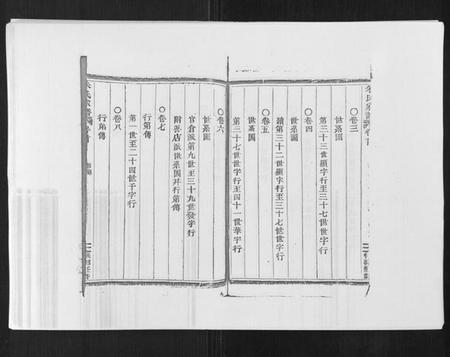 〇卷三
世系圖
第三十三世顯字行至三十七世世字行
〇卷四
世系圖
續第三十二世顯字行至三十七世世字行
〇卷五
世系圖
第三十七世世字行至四十一世華字行
〇卷六
世系圖
官倉派第九世至三十九世發字行
附舊店派世系圖幷行第傳
〇卷七
行第傳
第一世至二十四世予字行
〇卷八
行第傳